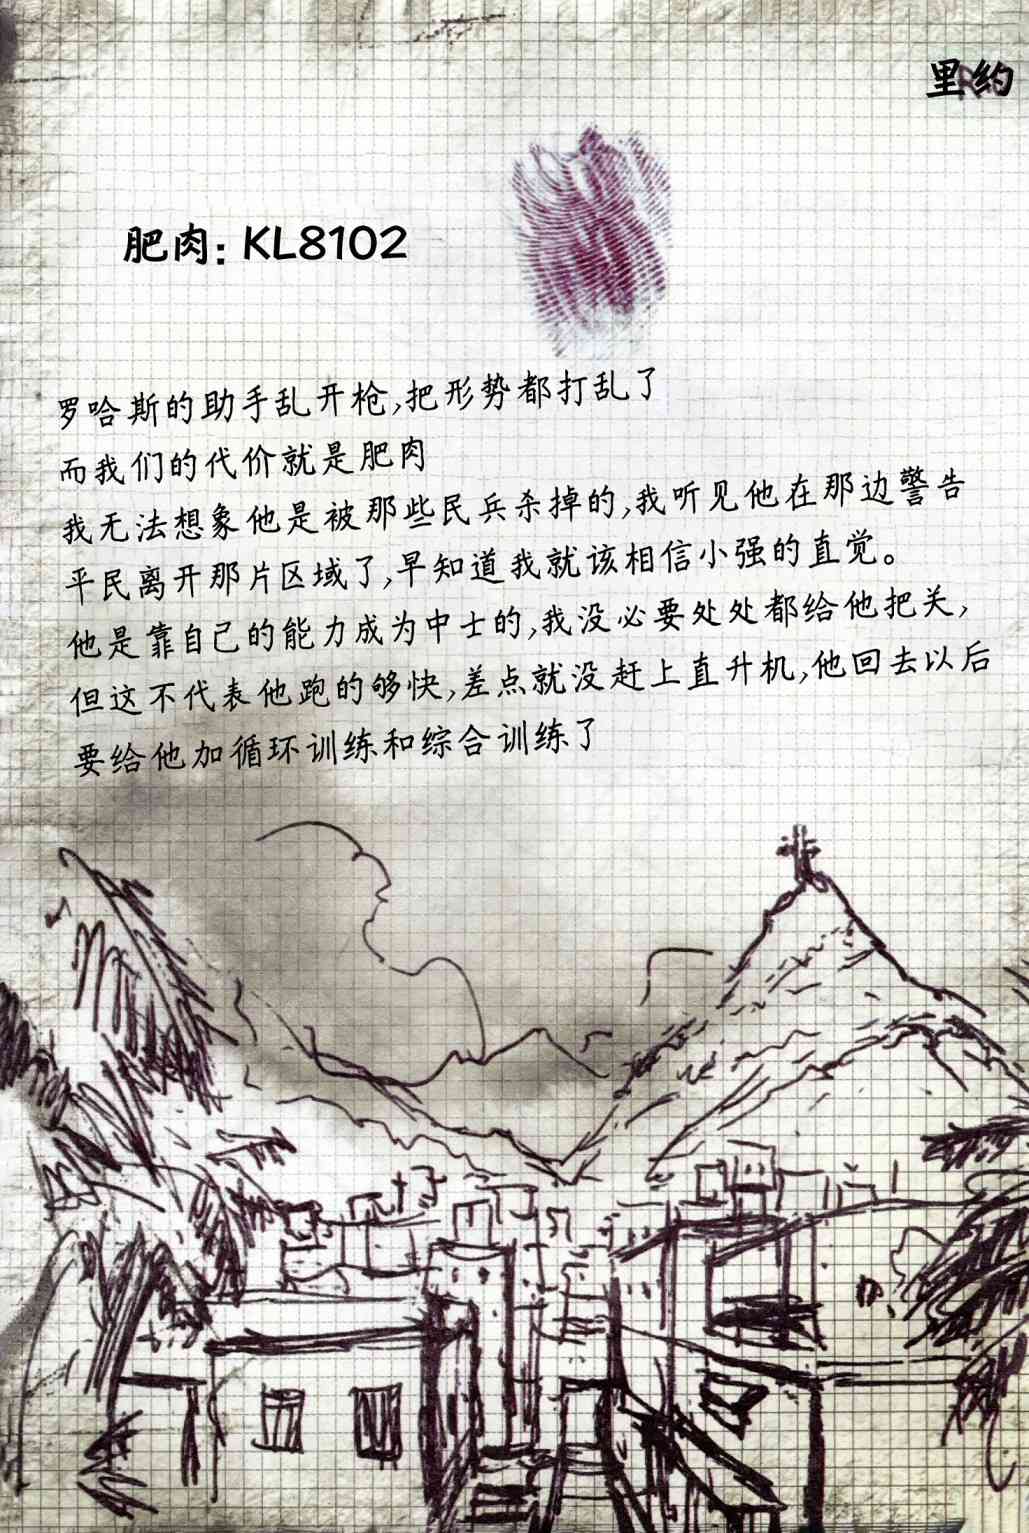 里约
肥肉: KL8102
罗哈斯的助手乱开枪,把形势都打乱了
而我们的代价就是肥肉
我无法想象他是被那些民兵杀掉的,我听见他在那边警告
平民离开那片区域了,早知道我就该相信小强的直觉。
他是靠自己的能力成为中士的,我没必要处处都给他把关,
但这不代表他跑的够快,差点就没赶上直升机,他回去以后
要给他加循环训练和综合训练了